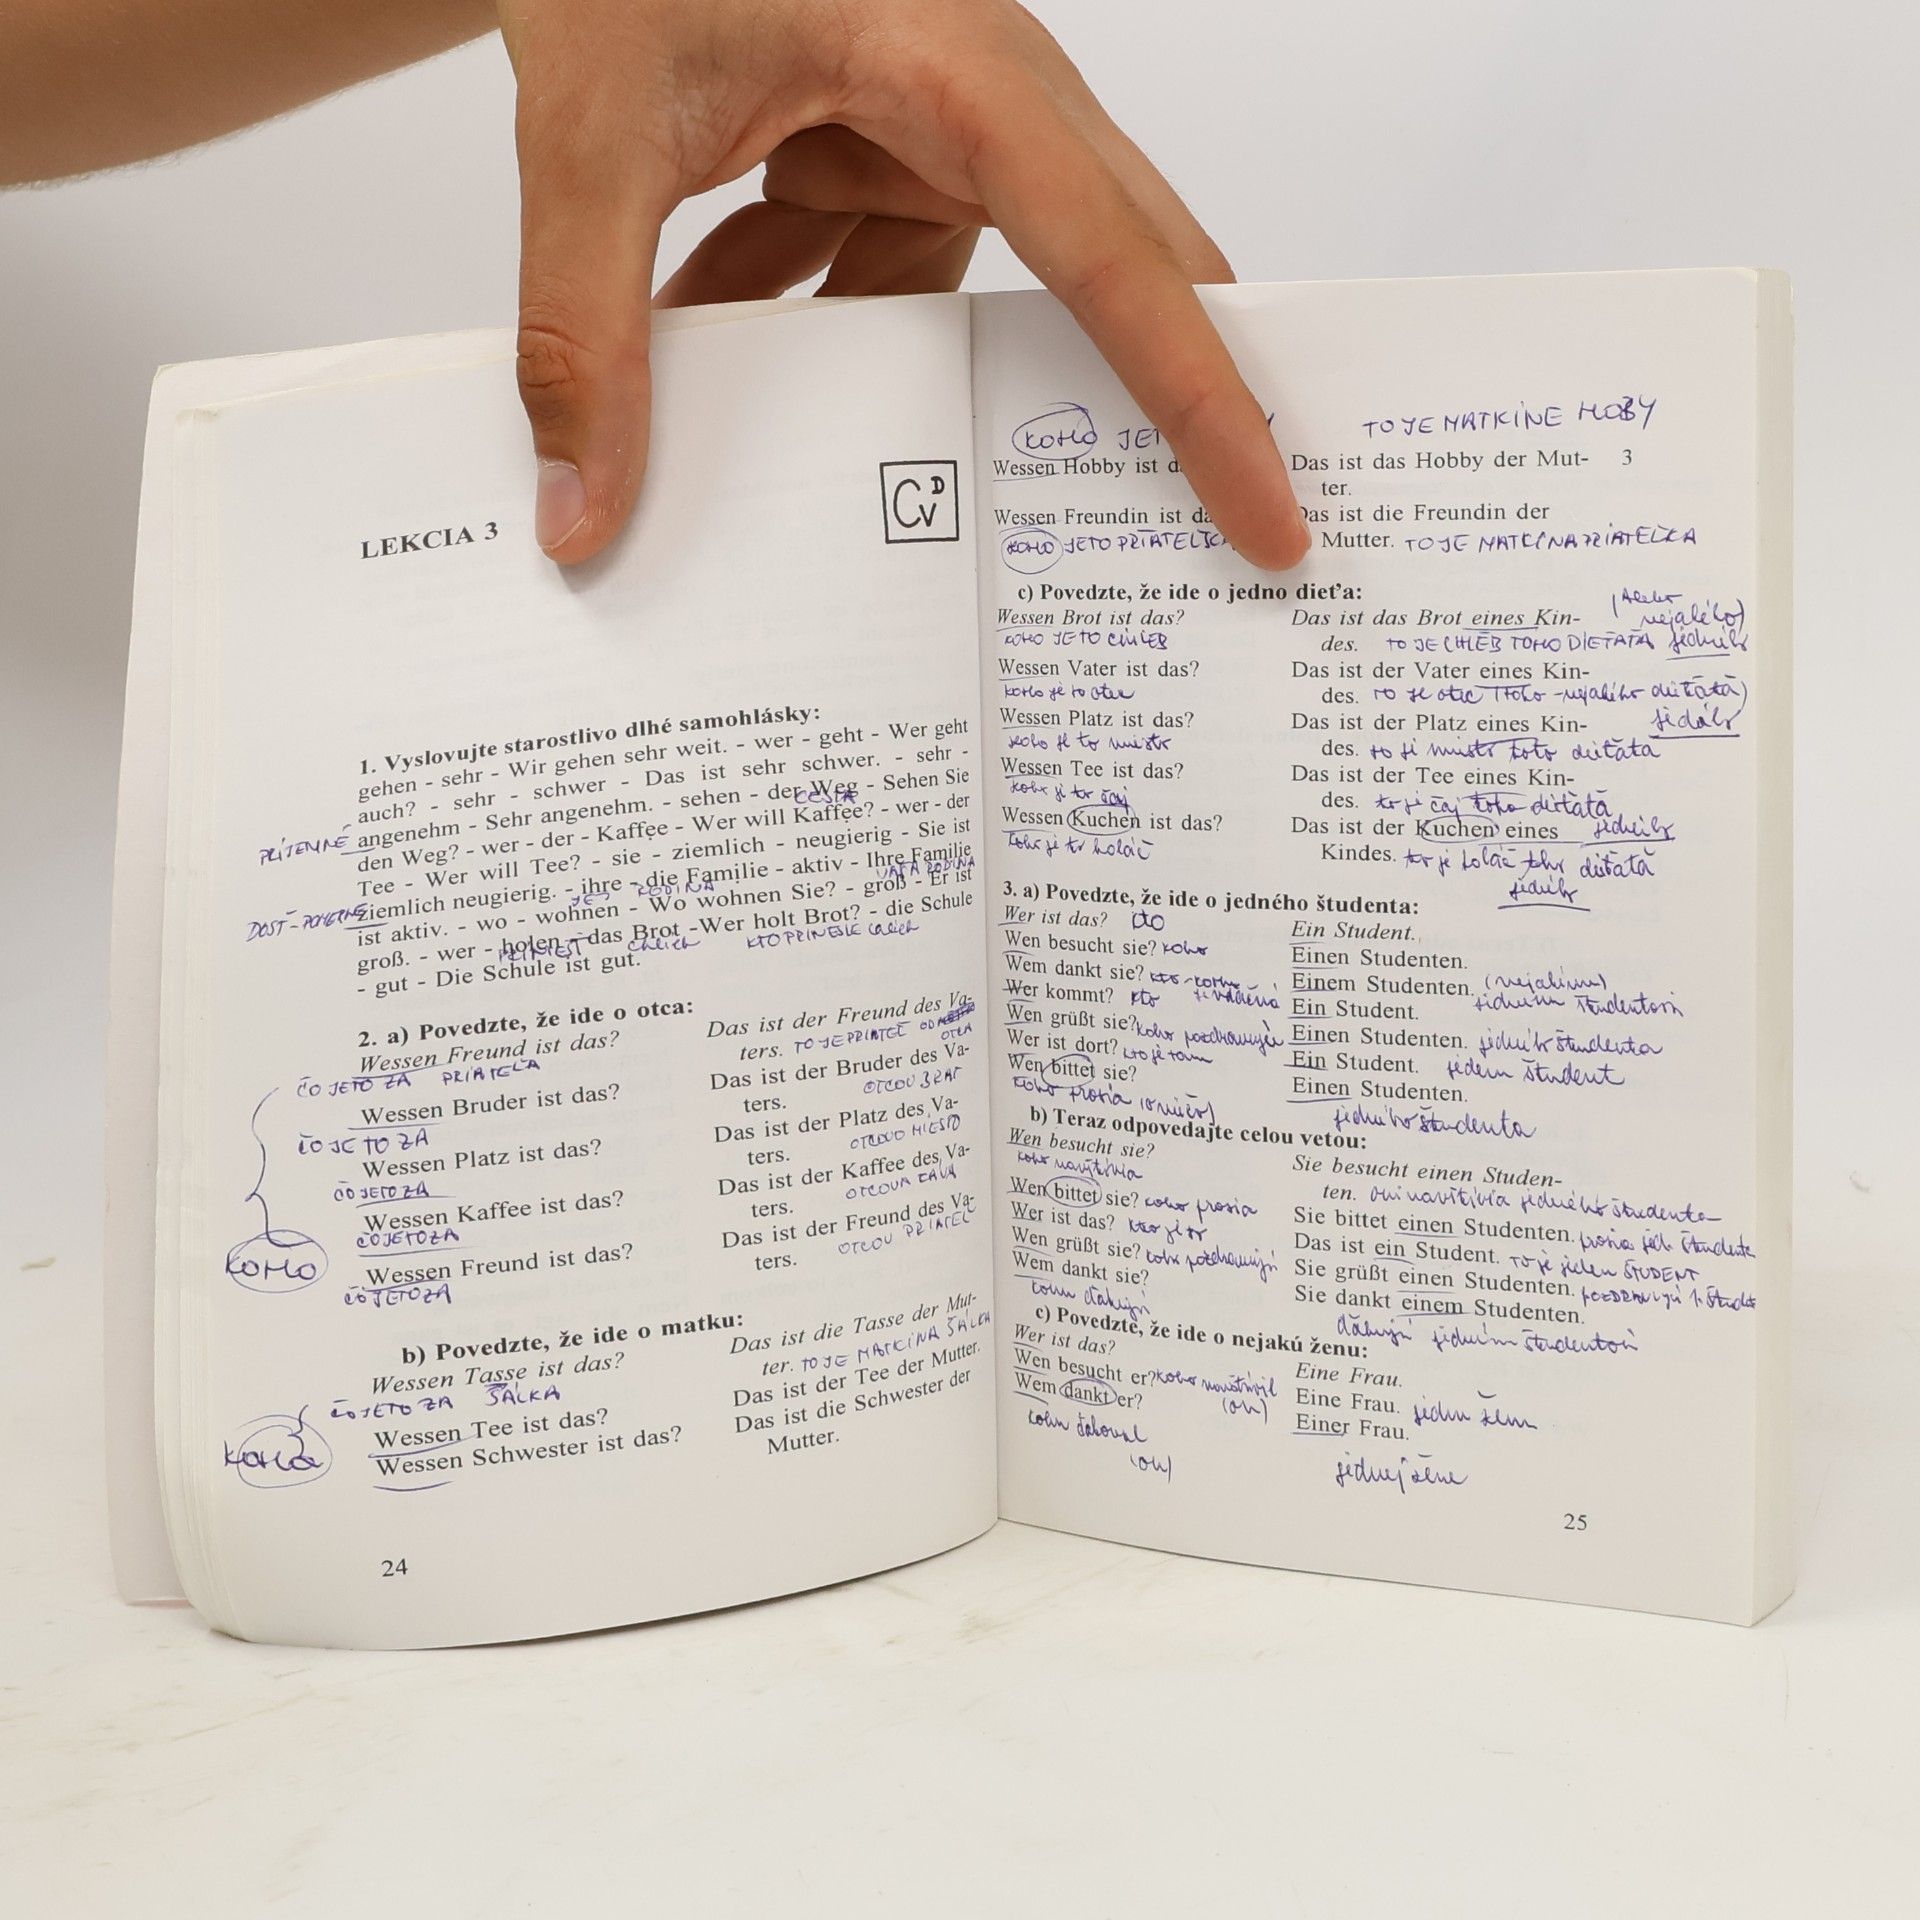 LEKCIA 3
CVD
1. Vyslovujte starostlivo dlhé samohlásky:
gehen - sehr - Wir gehen sehr weit. - wer - geht - Wer geht
auch? - sehr - schwer - Das ist sehr schwer. - sehr -
angenehm - Sehr angenehm. - sehen - der Weg - Sehen Sie
CESTA
PRÍJEMNÉ
den Weg? - wer - der - Kaffee - Wer will Kaffee? - wer - der
Tee - Wer will Tee? - sie - ziemlich - neugierig - Sie ist
ziemlich neugierig. - ihre - die Familie - aktiv - Ihre Familie
RODINA
ist aktiv. - wo - wohnen - Wo wohnen Sie? - groß - Er ist
groß. - wer - holen - das Brot -Wer holt Brot? - die Schule
PRINIEST chlieb KTO PRINESIE chlieb
- gut - Die Schule ist gut.
2. a) Povedzte, že ide o otca:
Wessen Freund ist das?
ČO JE TO ZA PRIATEĽA
Das ist der Freund des Va-
ters. TO JE PRIATEĽ OTCA
Wessen Bruder ist das?
ČO JE TO ZA
Das ist der Bruder des Va-
ters. OTCOV BRAT
Wessen Platz ist das?
ČO JE TO ZA
Das ist der Platz des Va-
ters. OTCOVO MIESTO
Wessen Kaffee ist das?
ČO JE TO ZA
Das ist der Kaffee des Va-
ters. OTCOVA KÁVA
Wessen Freund ist das?
ČO JE TO ZA
Das ist der Freund des Va-
ters. OTCOV PRIATEĽ
KOHO
b) Povedzte, že ide o matku:
Wessen Tasse ist das?
ČO JE TO ZA ŠÁLKA
Das ist die Tasse der Mut-
ter. TO JE MATKINA ŠÁLKA
Wessen Tee ist das?
Das ist der Tee der Mutter.
Wessen Schwester ist das?
Das ist die Schwester der
Mutter.
KOHO
24
KOHO JE TO JE MATKINE HOBY
Wessen Hobby ist
Das ist das Hobby der Mut- 3
ter.
Wessen Freundin ist
Das ist die Freundin der
KOHO JE TO PRIATEĽKA
Mutter. TO JE MATKINA PRIATEĽKA
c) Povedzte, že ide o jedno dieťa:
Wessen Brot ist das?
KOHO JE TO CHLEB
Das ist das Brot eines Kin-
nejakého)
des. TO JE CHLEB TOHO DIEŤAŤA
Wessen Vater ist das?
koho je to otec
Das ist der Vater eines Kin-
des. to je otec
Wessen Platz ist das?
koho je to miesto
Das ist der Platz eines Kin-
des. to je miesto toho dieťaťa
Wessen Tee ist das?
koho je to čaj
Das ist der Tee eines Kin-
des. to je čaj toho dieťaťa
Wessen Kuchen ist das?
koho je to koláč
Das ist der Kuchen eines
Kindes. to je koláč toho dieťaťa
3. a) Povedzte, že ide o jedného študenta:
Wer ist das? kto
Ein Student.
Wen besucht sie? koho
Einen Studenten.
Wem dankt sie?
Einem Studenten.
Wer kommt? kto
Ein Student.
jednému študentovi
Wen grüßt sie? koho pozdravuje
Einen Studenten. jedného študenta
Wer ist dort? kto je tam
Ein Student. jeden študent
Wen bittet sie?
Einen Studenten.
koho prosia
jedného študenta
b) Teraz odpovedajte celou vetou:
Wen besucht sie?
koho navštívia
Sie besucht einen Studen-
ten. oni navštívia jedného študenta
Wen bittet sie? koho prosia
Sie bittet einen Studenten.
Wer ist das? kto je to
Das ist ein Student. to je jeden ŠTUDENT
Wen grüßt sie? koho pozdravujú
Sie grüßt einen Studenten.
Wem dankt sie?
komu ďakujú
Sie dankt einem Studenten.
ďakujú jedným študentovi
c) Povedzte, že ide o nejakú ženu:
Wer ist das?
Eine Frau.
Wen besucht er? koho navštívil
(on)
Eine Frau. jednu ženu
Wem dankt er?
Einer Frau.
komu ďakoval
(on)
jednej žene
25